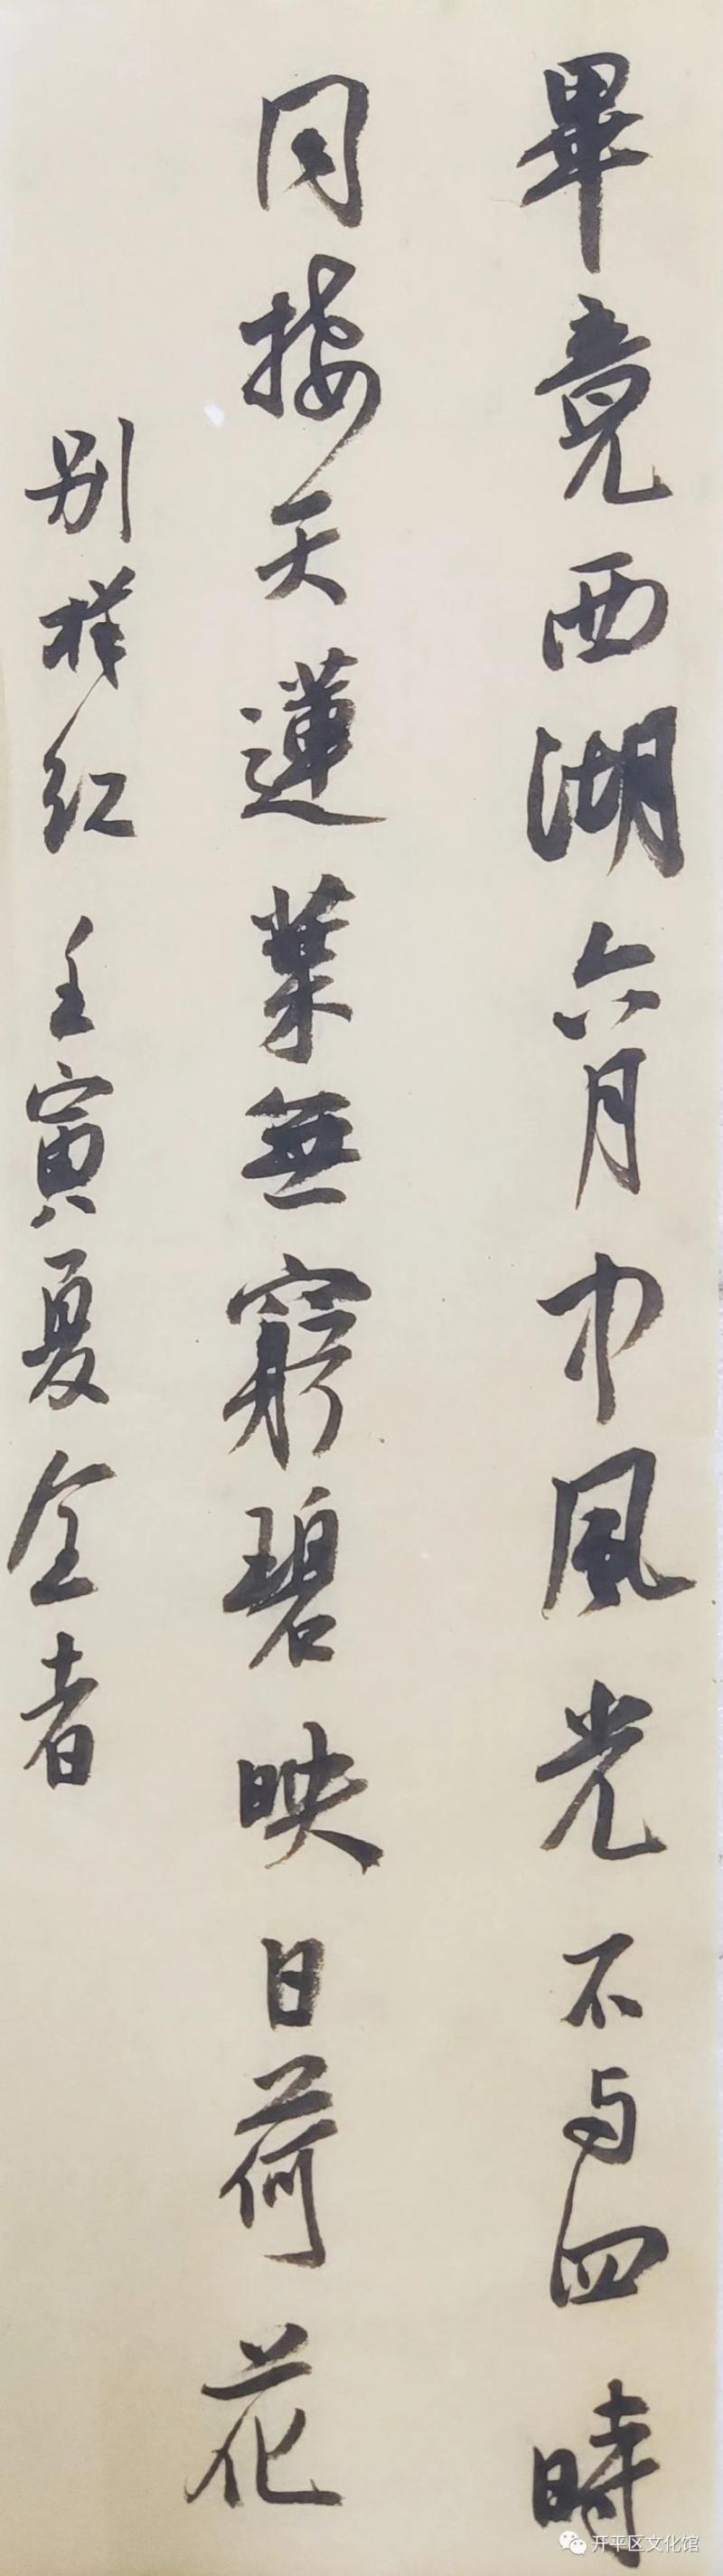 畢竟西湖六月中風光不与四時
同接天蓮葉無窮碧映日荷花
别樣红 壬寅夏金者
开平区文化馆